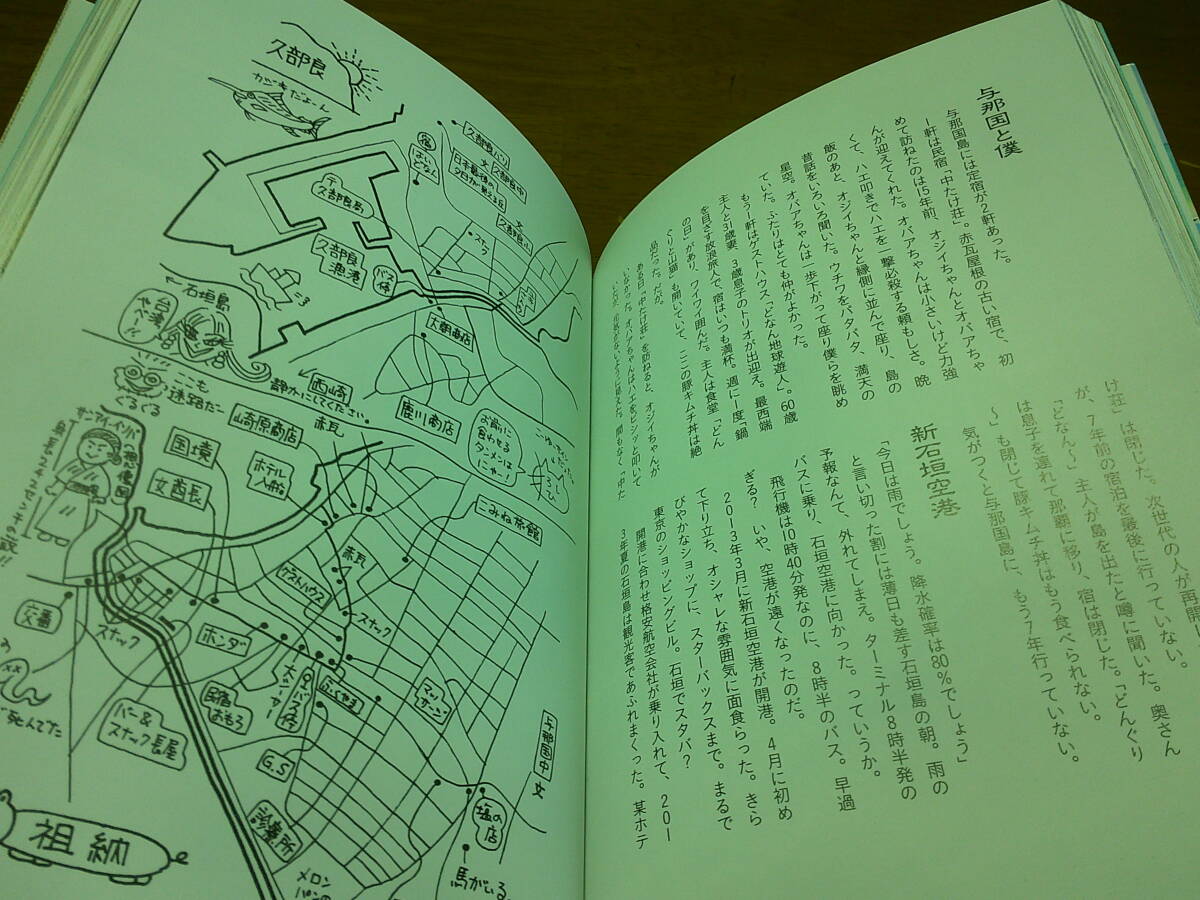 与那国と僕
与那国島には定宿が2軒あった。
1軒は民宿「中たけ荘」。赤瓦屋根の古い宿で、初
めて訪ねたのは15年前、オジイちゃんとオバアちゃ
んが迎えてくれた。オバアちゃんは小さいけど力強
くて、ハエ叩きでハエを一撃必殺する頼もしさ。晩
飯のあと、オジイちゃんと縁側に並んで座り、島の
昔話をいろいろ聞いた。ウチワをパタパタ、満天の
星空。オバアちゃんは一歩下がって座り僕らを眺め
ていた。ふたりはとても仲がよかった。
もう1軒はゲストハウス「どなん地球遊人」。60歳
主人と31歳妻、3歳息子のトリオが出迎え。最西端
を目ざす放浪旅人で、宿はいつも満杯。週に1度「鍋
の日」があり、ワイワイ囲んだ。主人は食堂「どん
ぐりと山猫」も開いていて、ここの豚キムチ丼は絶
品だった。だが。
ある日「中たけ荘」を訪ねると、オジイちゃんが
いなかった。オバアちゃんはハエをピシッと叩いて
間もなく「中た
け荘」は閉じた。次世代の人が再開
が、7年前の宿泊を最後に行っていない。
「どなん〜」主人が島を出たと噂に聞いた。奥さん
は息子を連れて那覇に移り、宿は閉じた。「どんぐり
〜」も閉じて豚キムチ丼はもう食べられない。
気がつくと与那国島に、もう7年行っていない。
新石垣空港
「今日は雨でしょう。降水確率は80%でしょう」
と言い切った割には薄日も差す石垣島の朝。雨の
予報なんて、外れてしまえ。ターミナル8時半発の
バスに乗り、石垣空港に向かった。っていうか。
飛行機は10時40分発なのに、8時半のバス。早過
ぎる？ いや、空港が遠くなったのだ。
2013年3月に新石垣空港が開港。4月に初め
て下り立ち、オシャレな雰囲気に面食らった。きら
びやかなショップに、スターバックスまで。まるで
東京のショッピングビル。石垣でスタバ？
開港に合わせ格安航空会社が乗り入れて、201
3年夏の石垣島は観光客であふれまくった。某ホテ
久部良
カジキだよーん
久部良バリ
文 久部良中
日本最後の
夕日が見える丘
文
久部良小
宿
はいどなん
〒
久部良局
久部良
漁港
バス停
スナック
大朝商店
石垣島
台湾
やべ〜
西崎
静かにしてください
ここも
迷路だー
ぐるぐる
崎原商店
赤瓦
唐川商店
お前に
食わせる
タンメンは
にゃー!
こみね旅館
サンアイイソバ
国境
文酋長
ホテル
入船
赤瓦
ゲストハウス
スナック
交番
スナック
ホンダ
大スーパー
バス停
ふくやま
マッサージ
民宿
おもろ
死んでた
バー&
スナック長屋
G.S
与那国中 文
診療所
塩の店
馬がいる
メロン
パンの
祖納